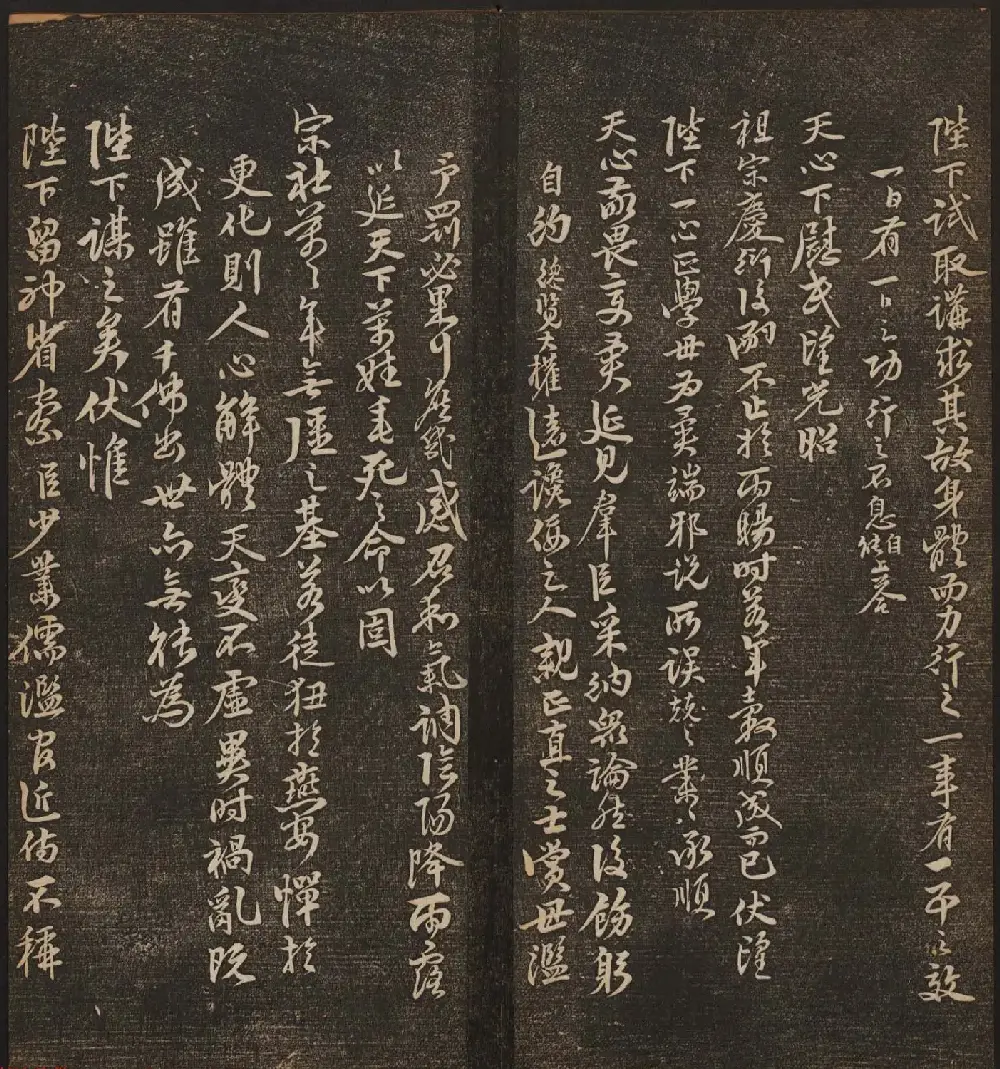 陛下試取講求其故身體而力行之一事有一事之效
一日有一日之功行之不息自能上答
天心下慰民望光昭
祖宗慶衍後嗣不止於雨暘時若年穀順成而已伏望
陛下一心正學毋為異端邪說所誤兢兢業業承順
天心敬畏变異延見群臣采納眾論然後飭躬
自約總覽大權遠讒佞之人親正直之士賞毋濫
予罰必果行庶幾感召和氣調陰陽降雨露
以延天下萬姓垂死之命以固
宗社萬萬年無疆之基若徒狃於燕安憚於
更化則人心解體天变不虛異時禍亂既
成雖有千佛出世亦無能為
陛下謀之矣伏惟
陛下留神省察臣少業儒濫官近侍不稱